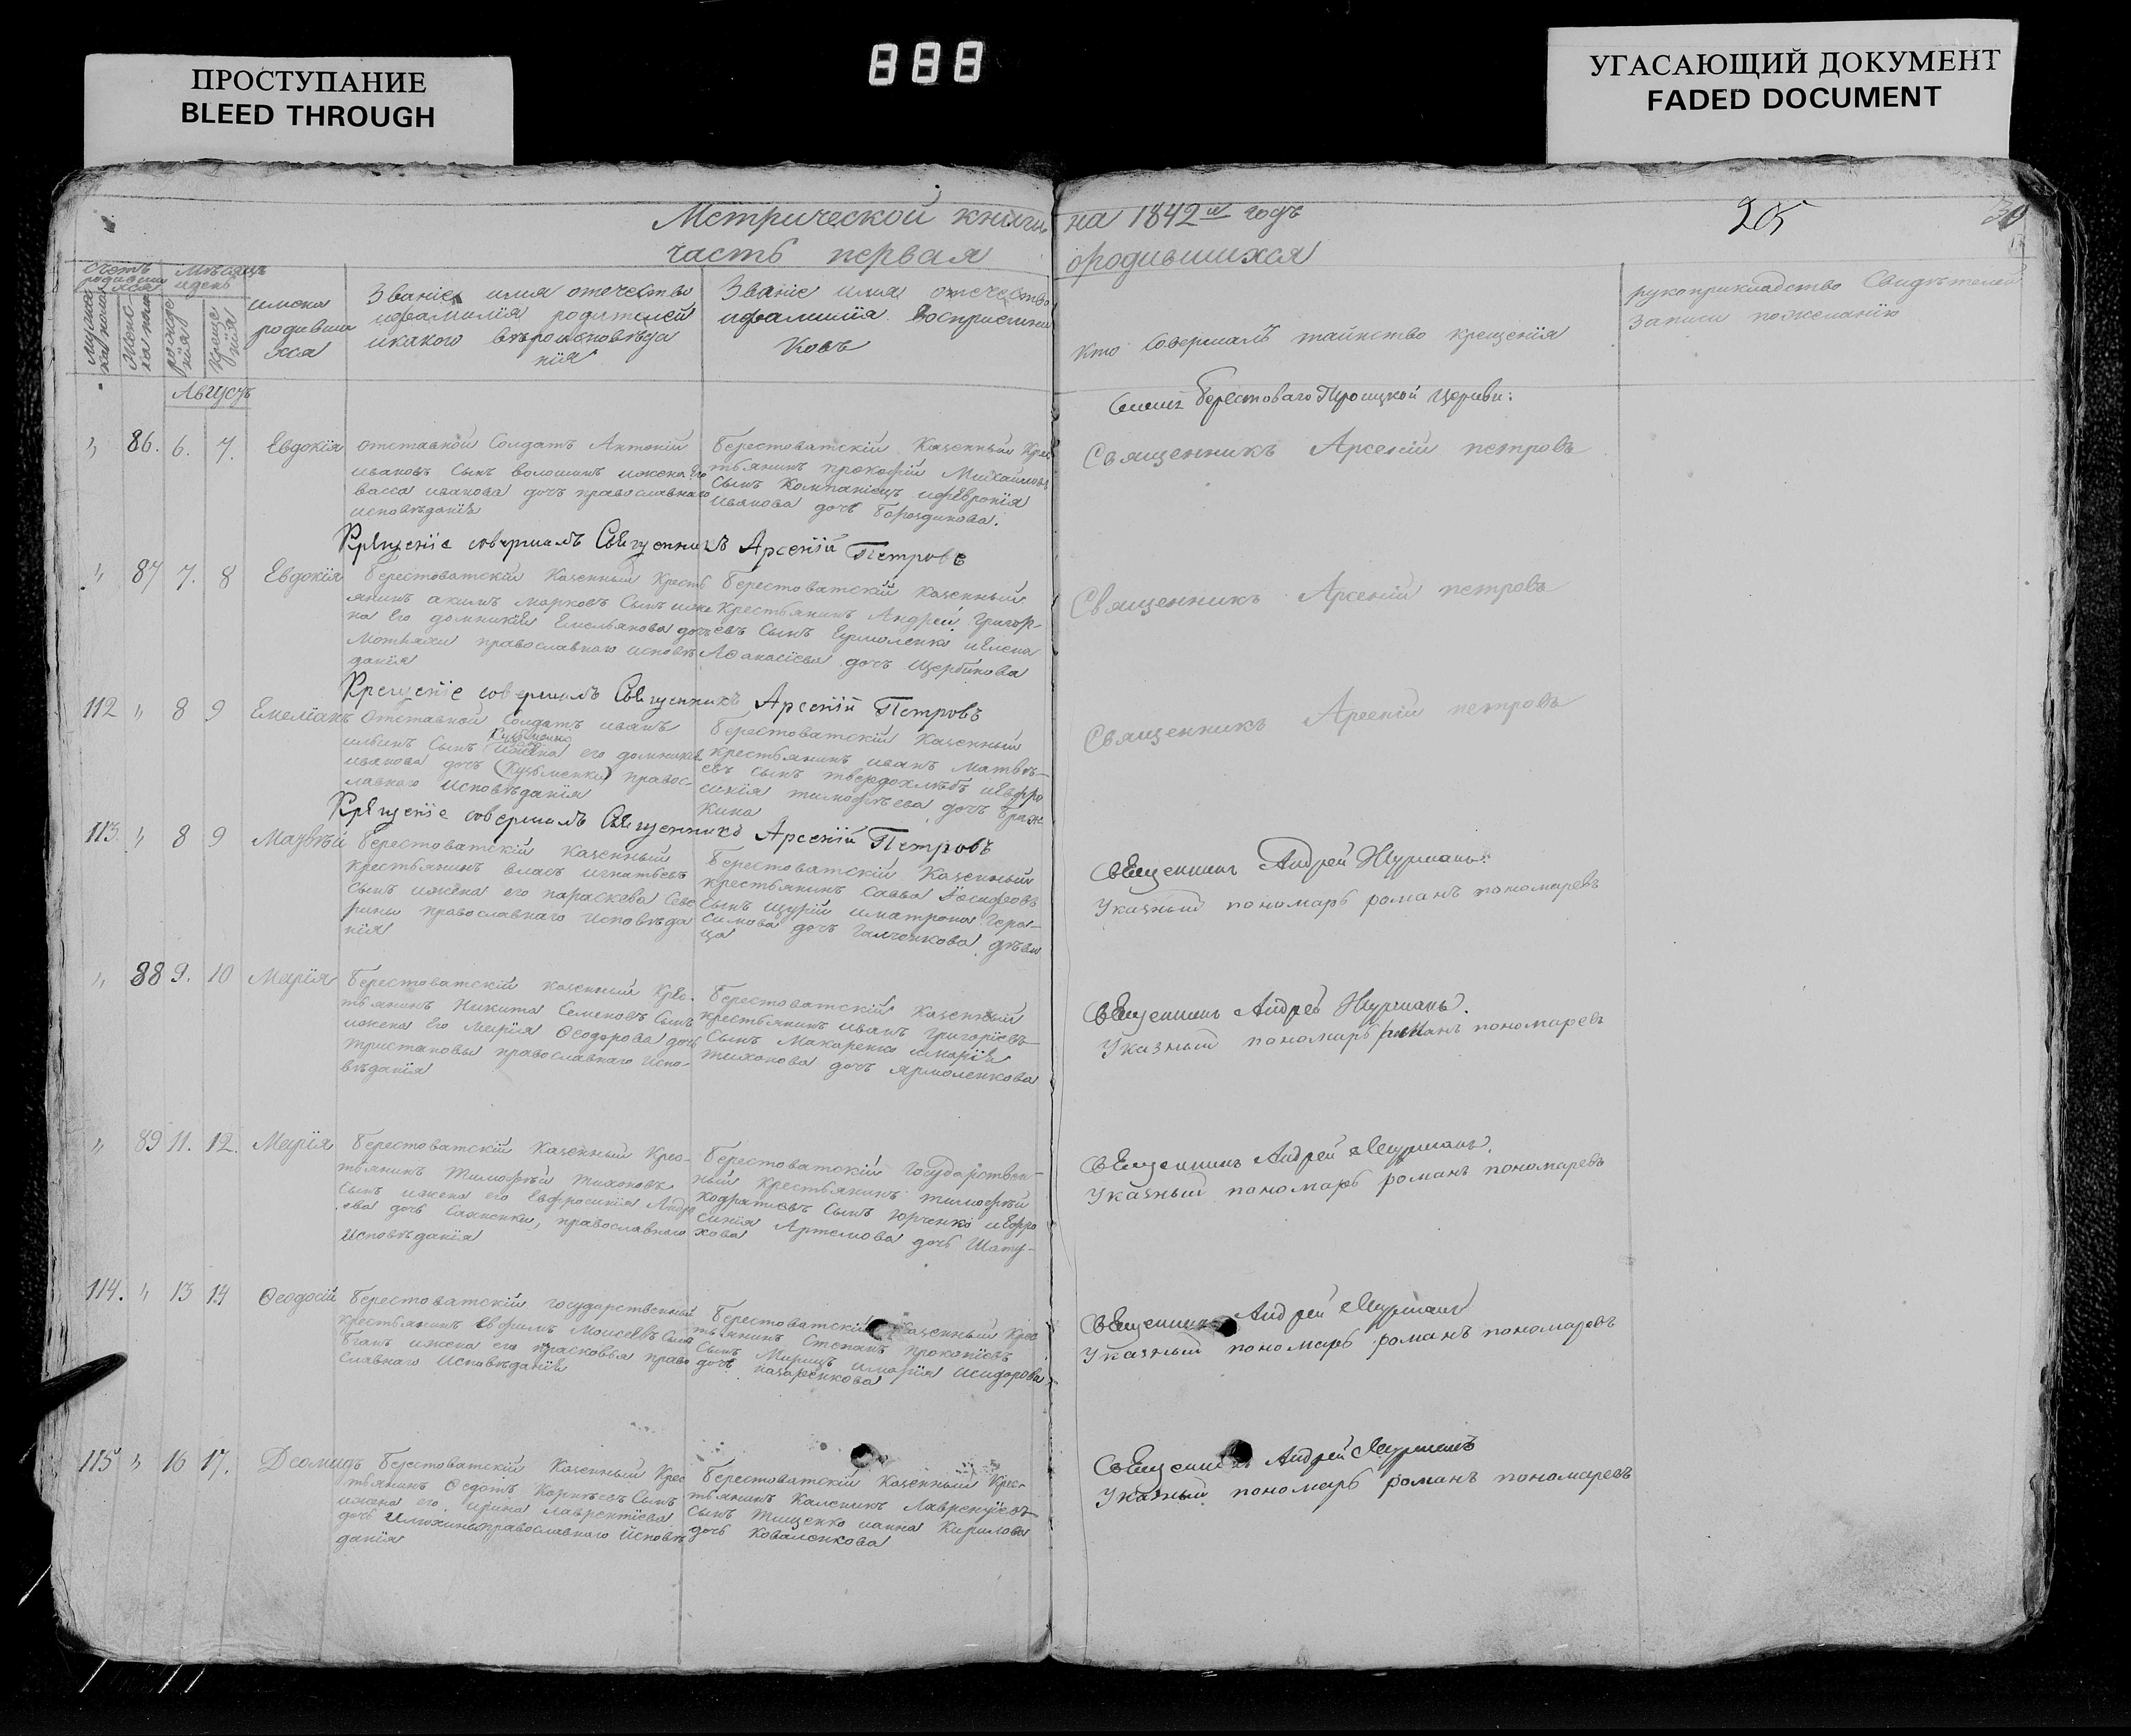 ПРОСТУПАНИЕ
BLEED THROUGH
888
УГАСАЮЩИЙ ДОКУМЕНТ
FADED DOCUMENT
Метрической книги на 1842й годъ
205
30
часть первая ородившихся
Счетъ родившихся
Мѣсяцъ идень
мужеска пола
Женска пола
рождения
Крещения
имена
родивши
хся
Званіе имя отечество
ифамилія родителей
икакого вѣроисповѣда
нія
Званіе имя отечество
ифамилія Восприемни
ковъ
Кто Совершалъ таинство крещенія
рукоприкладство Свидѣтелей
Записи пожеланію
Августъ
Берестоваго Троицкой Церкви:
" 86. 6. 7. Евдокія
отставной Солдатъ Антоній
ивановъ Сынъ волошинъ ижена Его
васса иванова дочь православнаго
исповѣданія
Берестоватскій Казенный Крес
тьянинъ прокофій Михайловъ
Сынъ Компаніецъ иФевронія
иванова дочь Бороздинова.
Священникъ Арсеній петровъ
Крещеніе совершалъ Священникъ Арсеній Петровъ
" 87 7. 8 Евдокія
Берестоватскій Казенный Кресть
янинъ акимъ марковъ Сынъ иже
на Его домникія Емельянова дочь
православнаго исповѣ
данія
Берестоватскій Казенный
Крестьянинъ Андрей Григор-
евъ Сынъ Ермоленко иЕлена
Аѳанасіева дочь Щербинова
Священникъ Арсеній петровъ
Крещеніе совершалъ Священникъ Арсеній Петровъ
112 " 8 9 Емеліанъ
Отставной Солдатъ иванъ
ильинъ Сынъ Кузьменко
ижена его домникія
иванова дочь (Кузьменки) правос-
лавнаго Исповѣданія
Берестоватскій Казенный
крестьянинъ иванъ Матвѣ-
евъ сынъ твердохлѣбъ иЕвфро
синія тимофѣева дочь Браж
кина
Священникъ Арсеній петровъ
Крещеніе совершалъ Священникъ Арсеній Петровъ
113. " 8 9 Матвѣй
Берестоватскій Казенный
Крестьянинъ власъ игнатьевъ
Сынъ ижена его параскева
православнаго Исповѣда
нія
Берестоватскій Казенный
крестьянинъ Савва Іосифовъ
Сынъ щурій иматрона Гера-
симова дочь Галченкова дѣви
ца
Священникъ Андрей
Указный пономарь романъ пономаревъ
" 88 9. 10 Марія
Берестоватскій казенный Крес-
тьянинъ Никита Семеновъ Сынъ
ижена Его Марія Ѳеодорова дочь
православнаго Испо-
вѣданія
Берестоватскій Казенный
крестьянинъ иванъ григоріевъ
Сынъ Макаренко имарія
тихонова дочь ярмоленкова
Священникъ Андрей
Указный пономарь романъ пономаревъ
" 89 11. 12. Марія
Берестоватскій Казенный Крес-
тьянинъ Тимофѣй тихоновъ
Сынъ ижена его Евфросинія Андре
ева дочь православнаго
Исповѣданія
Берестоватскій Государствен-
ный крестьянинъ тимофѣй
кодратіевъ Сынъ юрченко иЕвфро
синія Артемова дочь Шату-
хова
Священникъ Андрей
Указный пономарь романъ пономаревъ
114. " 13 14 Ѳеодосій
Берестоватскій государственный
крестьянинъ Евфимъ Моисеевъ Сынъ
ижена его прасковья право
славнаго Исповѣданія
Берестоватскій Казенный Крес
тьянинъ Степанъ Прокопіевъ
Сынъ имарія Исидорова
дочь назаренкова
Священникъ Андрей
Указный пономарь романъ пономаревъ
115 " 16 17. Деомидъ
Берестоватскій Казенный Крес
тьянинъ Ѳедотъ Корнѣевъ Сынъ
ижена его ирина лаврентіева
дочь православнаго Исповѣ
данія
Берестоватскій Казенный Крес-
тьянинъ Каленикъ Лаврентіевъ
сынъ Тищенко ианна Кирилова
дочь Коваленкова
Священникъ Андрей
Указный пономарь романъ пономаревъ